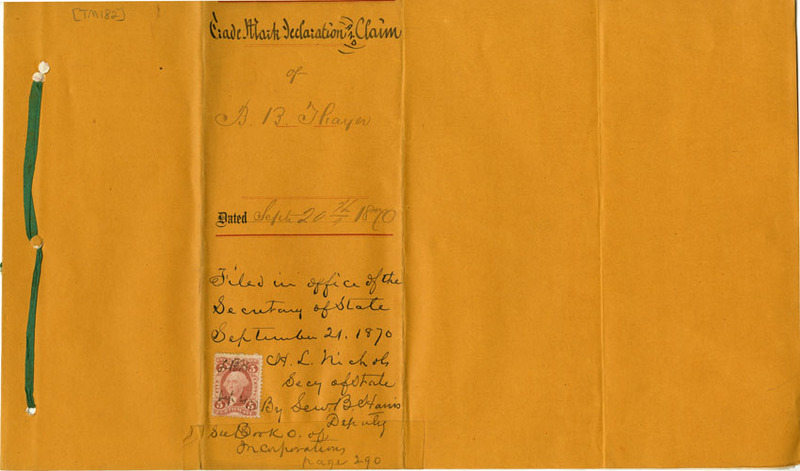 [TM182]
Trade Mark Declaration and Claim
of
B. B. Thayer
Dated Sept. 20th 1870
Filed in office of the
Secretary of State
September 21. 1870
H. L. Nichols
Secy of State
By Lew. B. Harris
Deputy
See Book O. of
Incorporations
page 290